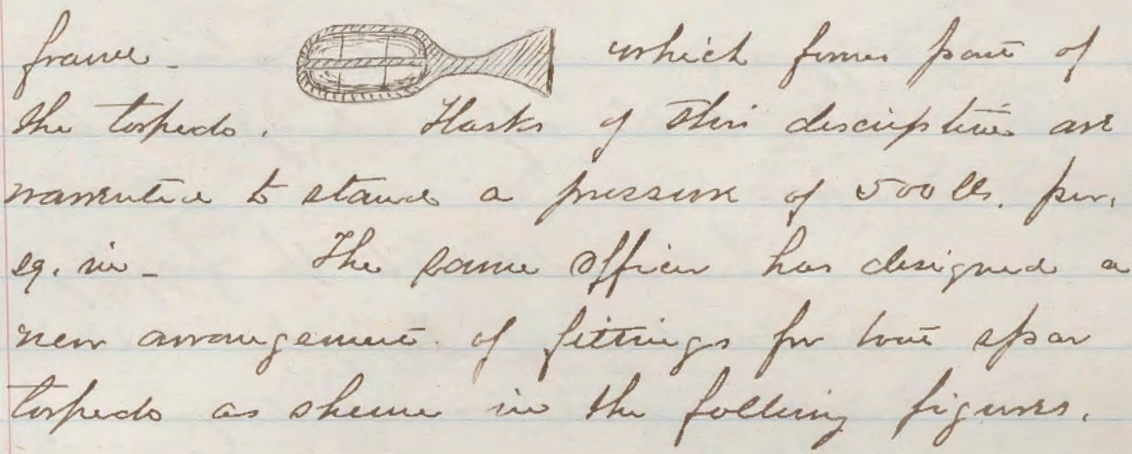 frame_ which forms part of
the torpedo. Flasks of this description are
warranted to stand a pressure of 500 lbs. per.
sq. in_ The same Officer has designed a
new arrangement of fittings for boat spar
torpedo as shewn in the folling figures.